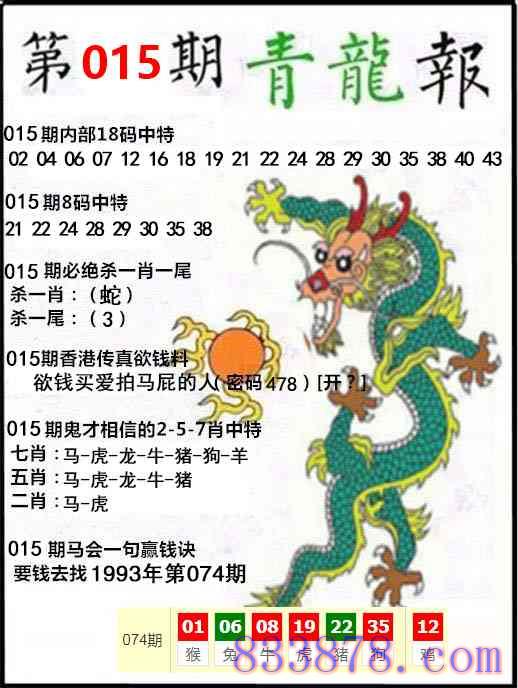 第015期青龍報
015期内部18码中特
02 04 06 07 12 16 18 19 21 22 24 28 29 30 35 38 40 43
015期8码中特
21 22 24 28 29 30 35 38
015期必绝杀一肖一尾
杀一肖：（蛇）
杀一尾：（3）
015期香港传真欲钱料
欲钱买爱拍马屁的人（密码478）[开？]
015期鬼才相信的2-5-7肖中特
七肖：马-虎-龙-牛-猪-狗-羊
五肖：马-虎-龙-牛-猪
二肖：马-虎
015期马会一句赢钱诀
要钱去找1993年第074期
074期 01 06 08 19 22 35 12
猴 兔 牛 虎 猪 狗 鸡
833878.com